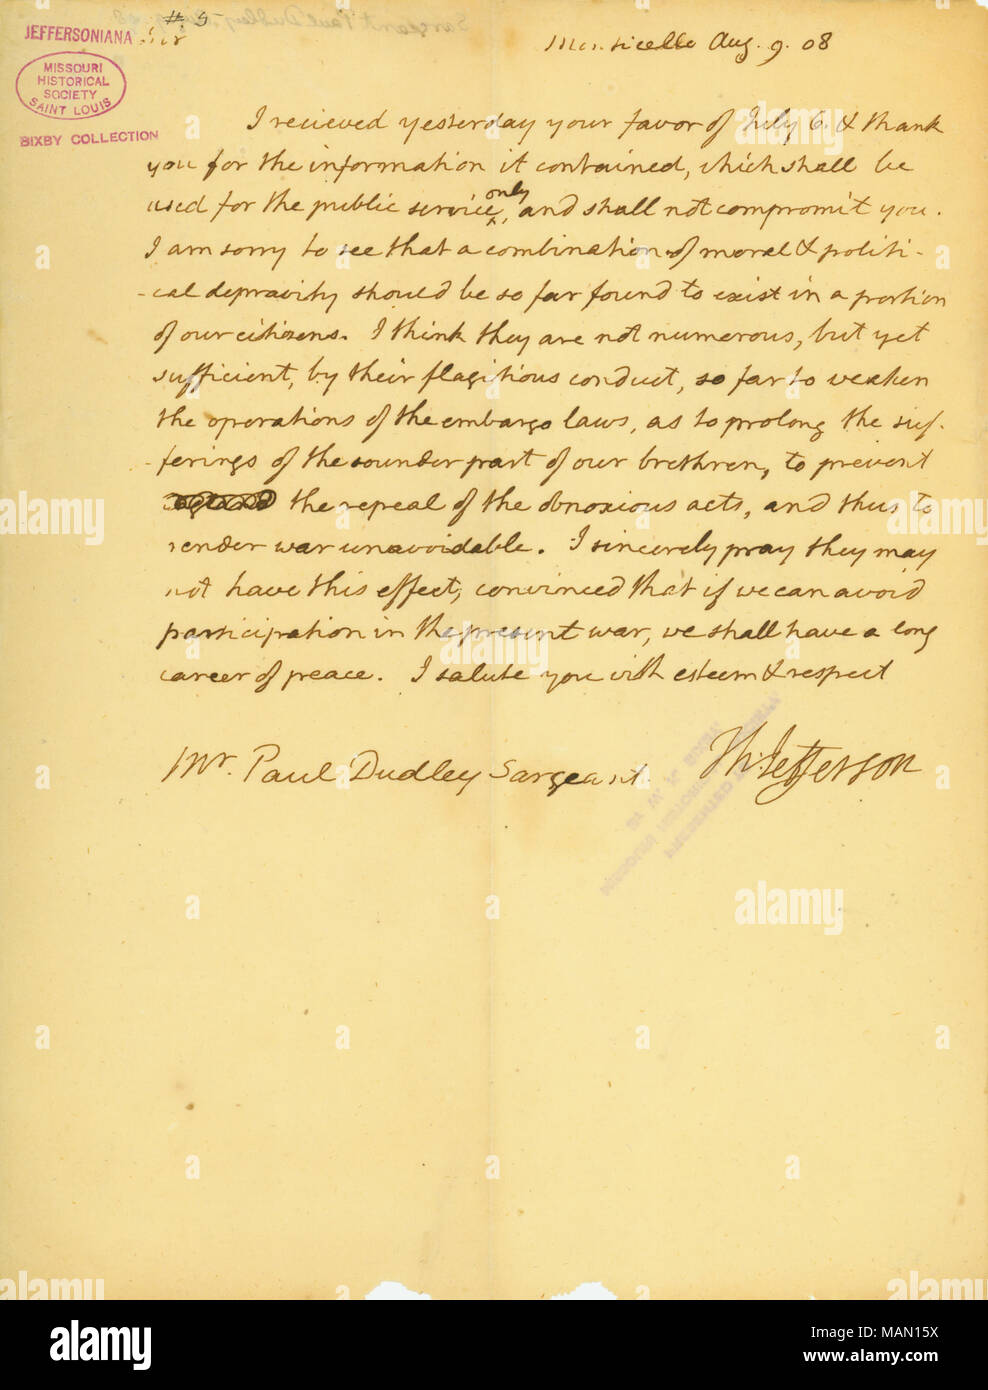 # 5
JEFFERSONIANA
MISSOURI
HISTORICAL
SOCIETY
SAINT LOUIS
BIXBY COLLECTION
Sir
Monticello Aug. 9. 08
I recieved yesterday your favor of July 6. & thank
you for the information it contained, which shall be
used for the public service only, and shall not compromit you.
I am sorry to see that a combination of moral & politi-
-cal depravity should be so far found to exist in a portion
of our citizens. I think they are not numerous, but yet
sufficient, by their flagitious conduct, so far to weaken
the operations of the embargo laws, as to prolong the suf-
-ferings of the sounder part of our brethren, to prevent
the repeal of the obnoxious acts, and thus to
render war unavoidable. I sincerely pray they may
not have this effect, convinced that if we can avoid
participation in the present war, we shall have a long
career of peace. I salute you with esteem & respect
Th: Jefferson
Mr. Paul Dudley Sargeant.
alamy
Image ID: MAN15X
www.alamy.com